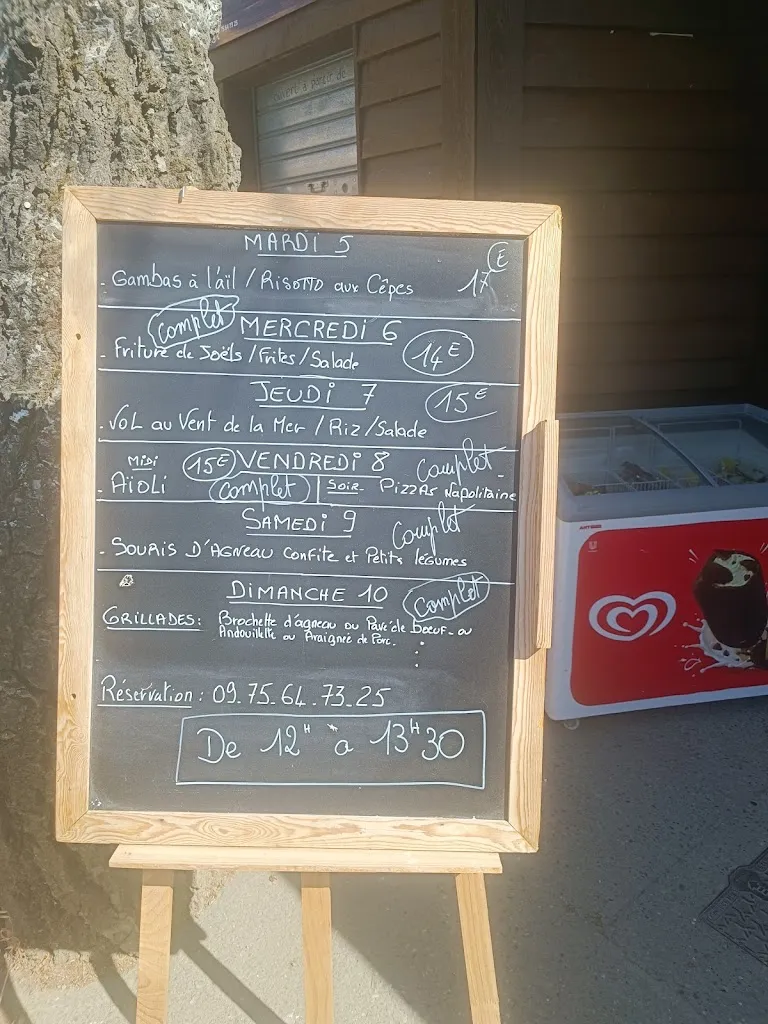 MARDI 5
- Gambas à l'aïl / RISOTTO aux Cêpes 17€
Complet MERCREDI 6
- Friture de Joëls / Frites / Salade 14€
JEUDI 7 15€
- VOL au Vent de la Mer / Riz / Salade
Midi 15€ VENDREDI 8 Complet
- Aïoli Complet Soir - Pizzas Napolitaine
SAMEDI 9 Complet
- SOURIS D'AGNEAU confite et Petits légumes
DIMANCHE 10 Complet
GRILLADES: Brochette d'agneau ou Pavé de boeuf - ou
Andouillette ou Araignée de Porc.
Réservation : 09.75.64.73.25
De 12H à 13H30